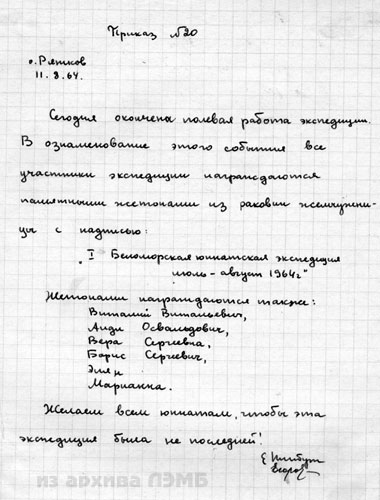 Приказ №20
о. Ряжков
11.8.64.
Сегодня окончена полевая работа экспедиции.
В ознаменование этого события все
участники экспедиции награждаются
памятными жетонами из раковин жемчужни-
цы с надписью:
„I Беломорская юннатская экспедиция
июль-август 1964г"
Жетонами награждаются также:
Виталий Витальевич,
Андр Освальдович,
Вера Сергеевна,
Борис Сергеевич,
Эля Н
Марианна.
Желаем всем юннатам, чтобы эта
экспедиция была не последней!
из архива ЛЭМБ